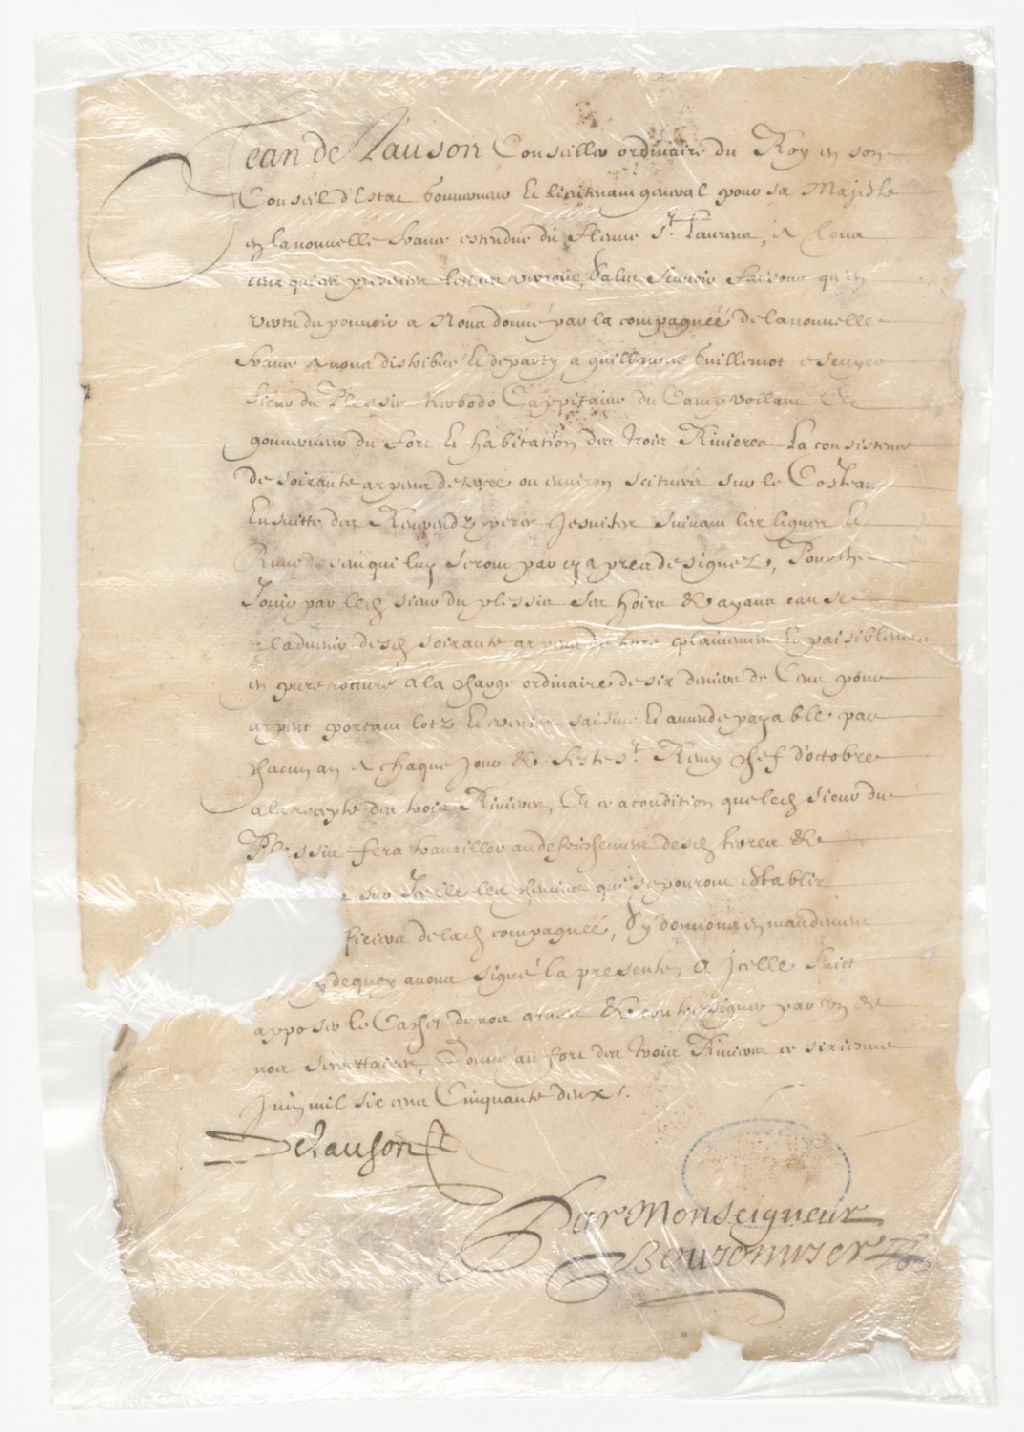 Jean de Lauson Conseiller ordinaire du Roy en son
Conseil d'Estat Gouverneur et lieutenant general pour sa Majesté
en la nouvelle france estendue du fleuve St. Laurens, A tous
ceux qui ces presentes lettres verront, Salut Scavoir faisons qu'en
vertu du pouvoir a Nous donné par la compagnee de la nouvelle
france Avons distribué et departy a guillaume Guillemot escuyer
sieur du Plessis Kerbodo Cappitaine du Camp vollant Et
gouverneur du fort et habitation des trois Rivieres La consistence
de soixante arpens de terre ou environ scituées sur le Costeau
En suitte des Reverendz peres Jesuites suivant les lignes et
Rumb de vent qui luy seront par cy apres designez, Pour
Jouir par led sieur du plessis ses hoirs et ayans cause
a l'advenir desd soixante arpens de terre plainement et paisiblement
en pure roture a la charge ordinaire de six deniers de Cens pour
arpent portant lotz et ventes saisine et amende payable par
chacun an A chaque jour et feste st. Remy chef d'octobre
a la recepte des trois Rivieres, Et ce a condition que led sieur du
Plessis fera travailler au defrichement desd terres et
sur Icelle les chemins qui se pouront establir
officiers de lad compagnée, Sy donnons en mandement
de quoy avons signé la presente, A Icelle faict
apposer le Cachet de nos armes et contresigner par un de
nos secretaires, Donné au fort des trois Rivieres ce sixiesme
Juin mil six cens Cinquante deux.
Delauson
Par Monseigneur